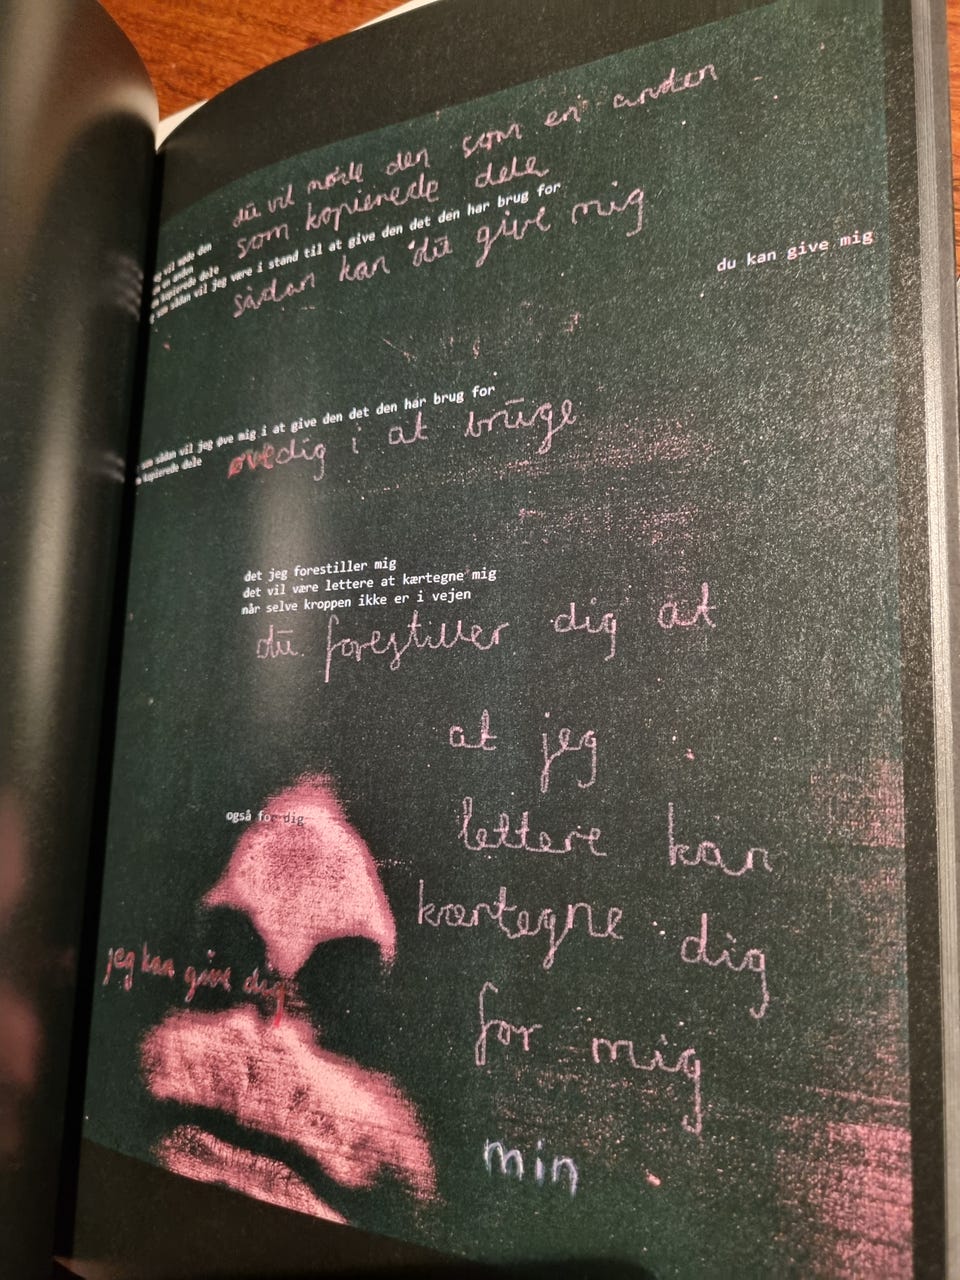 du vil møde den som en anden
som kopierede dele
vil møde den
som en anden
kopierede dele
som sådan vil jeg være i stand til at give den det den har brug for
sådan kan du give mig
du kan give mig
som sådan vil jeg øve mig i at give den det den har brug for
kopierede dele
øve dig i at bruge
det jeg forestiller mig
det vil være lettere at kærtegne mig
når selve kroppen ikke er i vejen
du forestiller dig at
at jeg
også for dig
lettere kan
kærtegne dig
jeg kan give dig
for mig
min